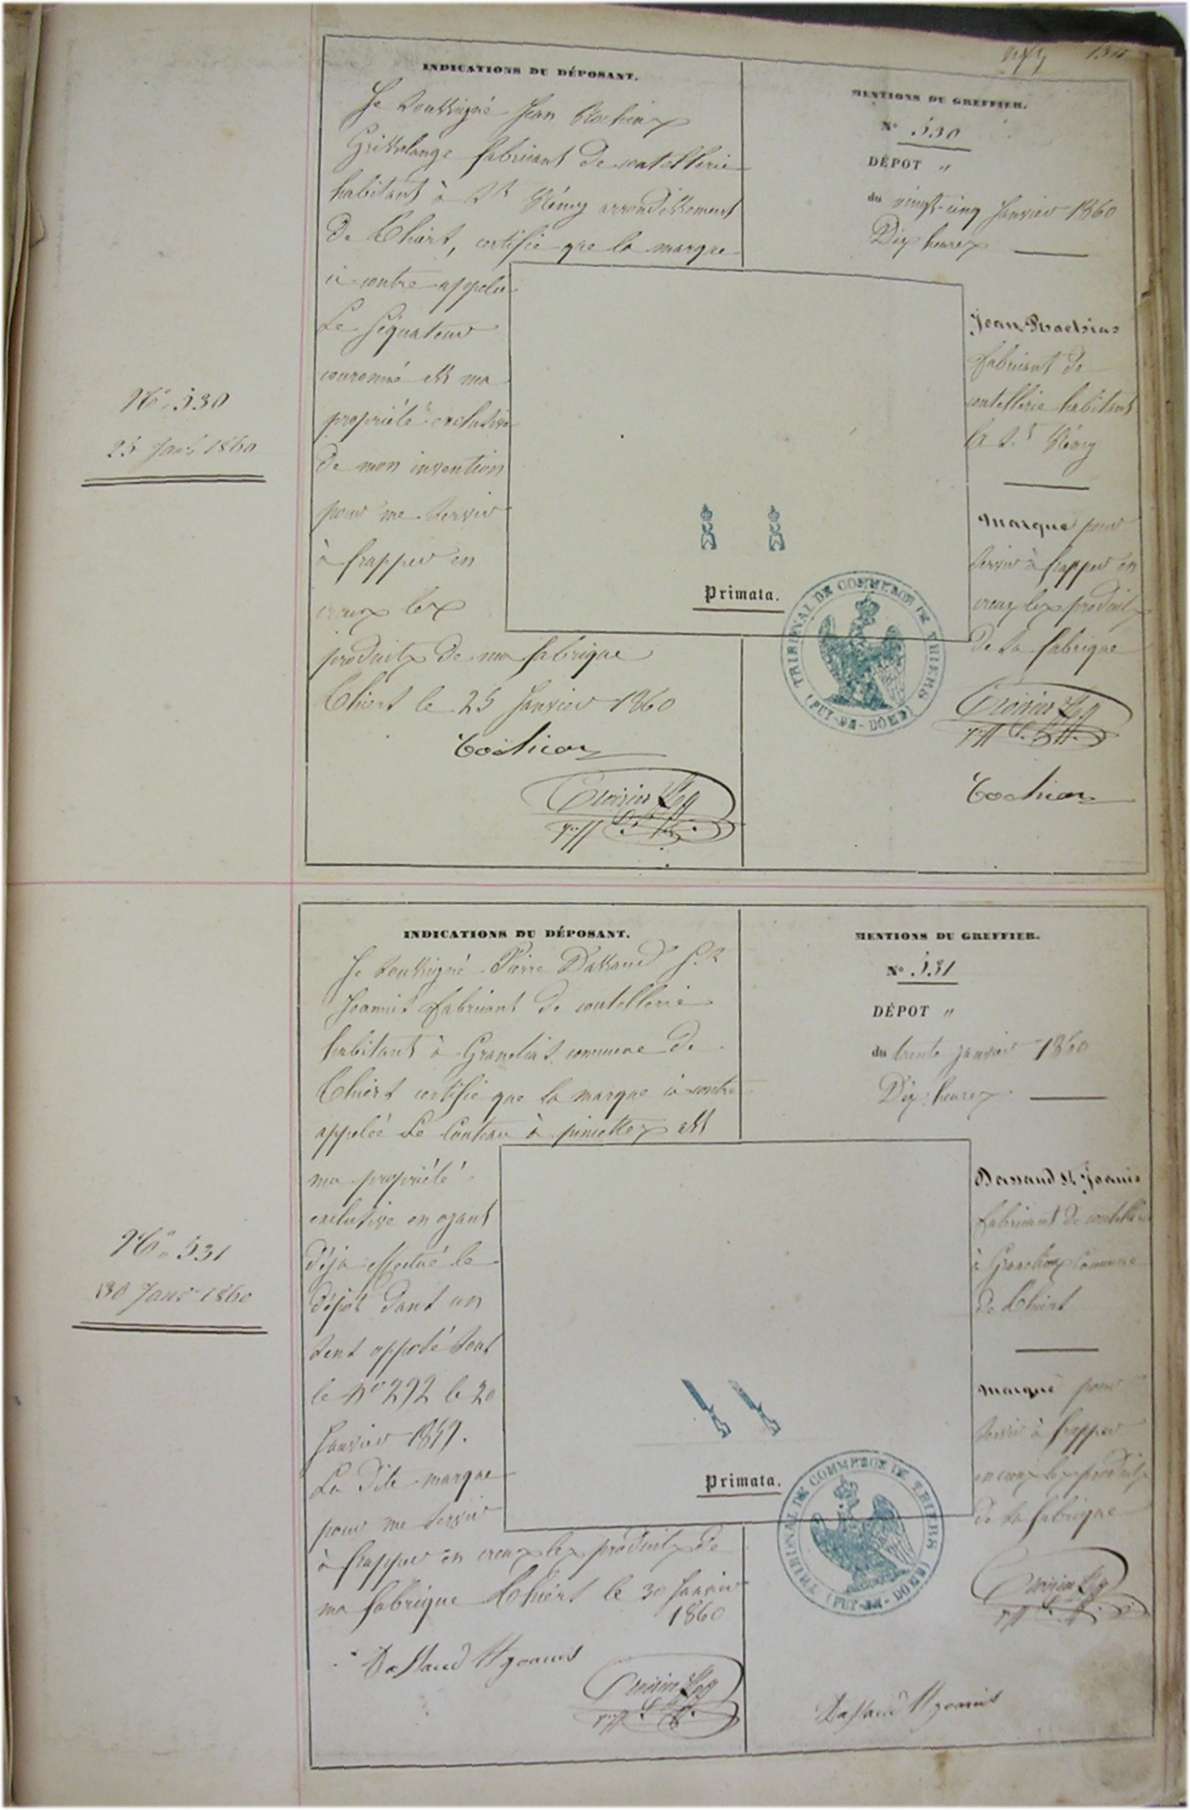 INDICATIONS DU DÉPOSANT.
Je soussigné Jean
fabricant de coutellerie
habitant à St Rémy arrondissement
de Thiers, certifie que la marque
ci contre appelée
Le
couronné est ma
propriété exclusive
de mon invention
pour me servir
à frapper en
creux les
produits de ma fabrique
Thiers le 25 Janvier 1860
MENTIONS DU GREFFIER.
No 530
DÉPOT "
du vingt-cinq Janvier 1860
Dix heures
Jean
fabricant de
coutellerie habitant
à St Rémy
marque pour
servir à frapper en
creux les produits
de sa fabrique
No 530
25 Janv 1860
Primata.
TRIBUNAL DE COMMERCE DE THIERS
(PUY-DE-DOME)
INDICATIONS DU DÉPOSANT.
Je soussigné Pierre Dassaud St
Joannis fabricant de coutellerie
habitant à commune de
Thiers certifie que la marque ci contre
appelée Le Couteau à est
ma propriété
exclusive en ayant
déja effectué le
dépôt dans un
sens opposé sous
le No 292 le 20
Janvier 1859.
La dite marque
pour me servir
à frapper en creux les produits de
ma fabrique Thiers le 30 Janvier
1860
Dassaud St Joanis
MENTIONS DU GREFFIER.
No 531
DÉPOT "
du trente janvier 1860
Dix heures
Dassaud St Joanis
fabricant de coutellerie
à commune
de Thiers
marque pour
servir à frapper
en creux les produits
de sa fabrique
Dassaud St Joanis
No 531
30 Janv 1860
Primata.
TRIBUNAL DE COMMERCE DE THIERS
(PUY-DE-DOME)